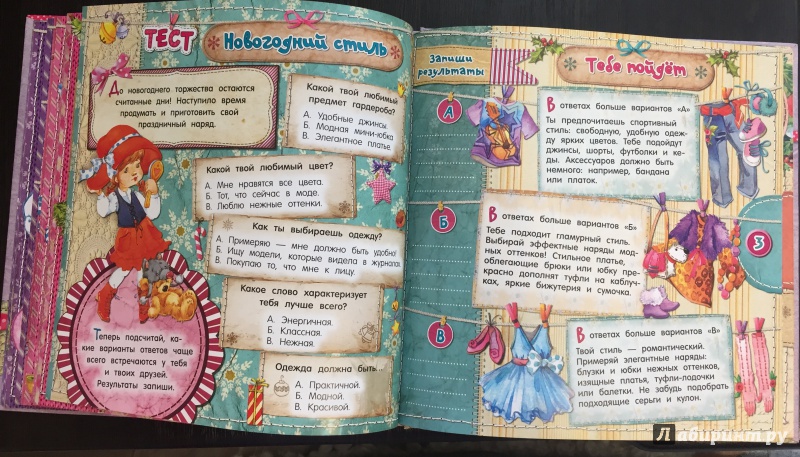 ТЕСТ
Новогодний стиль
До новогоднего торжества остаются
считанные дни! Наступило время
продумать и приготовить свой
праздничный наряд.
Какой твой любимый
предмет гардероба?
А. Удобные джинсы.
Б. Модная мини-юбка.
В. Элегантное платье.
Какой твой любимый цвет?
А. Мне нравятся все цвета.
Б. Тот, что сейчас в моде.
В. Люблю нежные оттенки.
Как ты выбираешь одежду?
А. Примеряю — мне должно быть удобно!
Б. Ищу модели, которые видела в журналах.
В. Покупаю то, что мне к лицу.
Какое слово характеризует
тебя лучше всего?
А. Энергичная.
Б. Классная.
В. Нежная.
Одежда должна быть...
А. Практичной.
Б. Модной.
В. Красивой.
Теперь подсчитай, ка-
кие варианты ответов чаще
всего встречаются у тебя
и твоих друзей.
Результаты запиши.
Запиши
результаты
Тебе пойдёт
А
В ответах больше вариантов «А»
Ты предпочитаешь спортивный
стиль: свободную, удобную одеж-
ду ярких цветов. Тебе подойдут
джинсы, шорты, футболки и ке-
ды. Аксессуаров должно быть
немного: например, бандана
или платок.
Б
В ответах больше вариантов «Б»
Тебе подходит гламурный стиль.
Выбирай эффектные наряды мод-
ных оттенков! Стильное платье,
облегающие брюки или юбку пре-
красно дополнят туфли на каблу-
ках, яркие бижутерия и сумочка.
3
В
В ответах больше вариантов «В»
Твой стиль — романтический.
Примеряй элегантные наряды:
блузки и юбки нежных оттенков,
изящные платья, туфли-лодочки
или балетки. Не забудь подобрать
подходящие серьги и кулон.
Лабиринт.ру